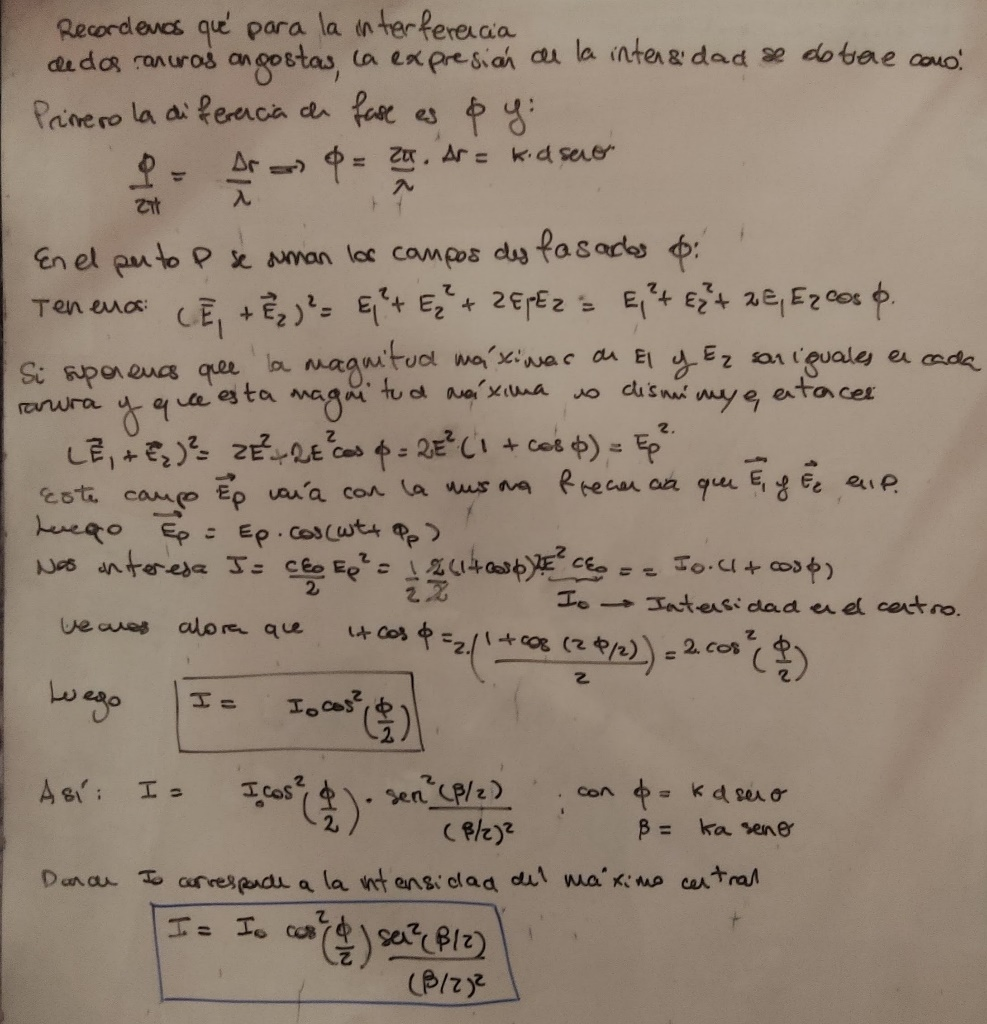 Recordemos qué para la interferencia
de dos ranuras angostas, la expresión de la intensidad se obtiene como:
Primero la diferencia de fase es φ y:
φ/2π = Δr/λ => φ = 2π/λ . Δr = k.d senθ
En el punto P se suman los campos desfasados φ:
Tenemos: (E⃗₁ + E⃗₂)² = E₁² + E₂² + 2E₁·E₂ = E₁² + E₂² + 2E₁E₂cos φ.
Si suponemos que la magnitud máximas de E1 y E2 son iguales en cada
ranura y que esta magnitud máxima no disminuye, entonces
(E⃗₁ + E⃗₂)² = 2E² + 2E² cos φ = 2E² (1 + cos φ) = Ep².
Este campo E⃗p varía con la misma frecuencia que E⃗₁ y E⃗₂ en P.
Luego E⃗p = Ep . cos(ωt + φp)
Nos interesa I = cε₀/2 Ep² = 1/2 2/2 (1+cosφ) 2E² cε₀ = = I₀.(1 + cosφ)
I₀ → Intensidad en el centro.
Veamos ahora que 1+ cos φ = 2.((1 + cos (2 φ/2))/2) = 2. cos² (φ/2)
Luego I = I₀ cos² (φ/2)
Así: I = I₀ cos² (φ/2) . sen² (β/2)/(β/2)² ; con φ = k d senθ
β = ka senθ
Donde I₀ corresponde a la intensidad del máximo central
I = I₀ cos² (φ/2) sen² (β/2)/(β/2)²